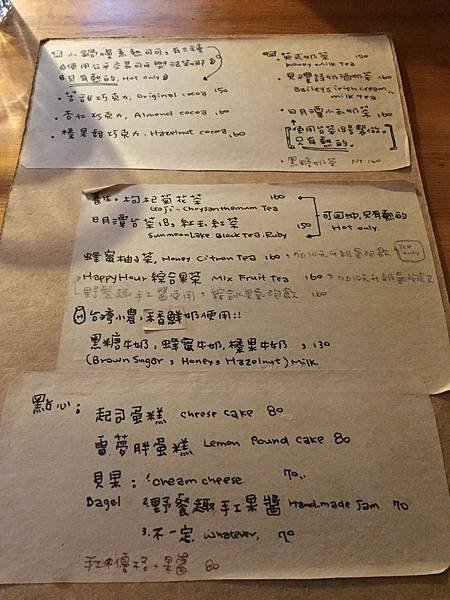 小農
只有熱的, Hot only
苦甜巧克力, Original cocoa 150
杏仁巧克力, Almond cocoa 160
榛果甜巧克力, Hazelnut cocoa 160
英式奶茶 150
Honey Milk Tea
貝禮詩奶酒奶茶 160
Baileys Irish cream milk Tea
日月潭小玉奶茶 160
只有熱的.
黑糖奶茶 NT 160
養生. 枸杞菊花茶 160
Goji - Chrysanthemum Tea
日月潭台茶18, 紅玉紅茶 150
Sunmoon Lake Black Tea. Ruby
可回沖, 只有熱的
Hot only.
蜂蜜柚子茶, Honey Citron Tea 160
ICE only
Happy Hour 綜合果茶 Mix Fruit Tea 160
野餐趣手工醬使用, 160
台灣小農, 香鮮奶使用!!
黑糖牛奶, 蜂蜜牛奶, 榛果牛奶, 130
(Brown Sugar, Honey, Hazelnut) Milk
點心:
起司蛋糕 cheese cake 80
雷夢胖蛋糕 Lemon Pound Cake 80
貝果: 1. cream cheese 70.
Bagel 2. 野餐趣手工果醬 Handmade Jam 70
3. 不一定, whatever, 70
優格 + 果醬 80